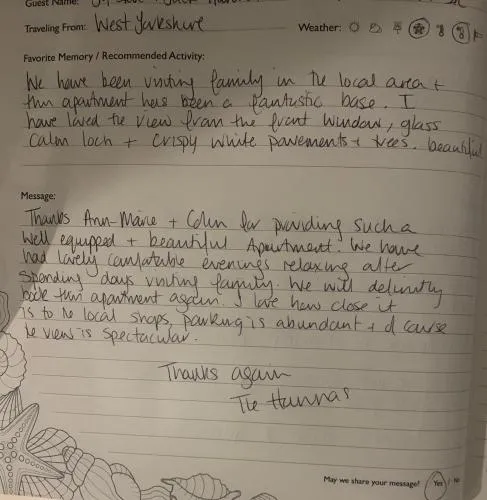 Guest Name:
Traveling From: West Yorkshire Weather:
Favorite Memory / Recommended Activity:
We have been visiting family in the local area +
this apartment has been a fantastic base. I
have loved the view from the front window, glass
calm loch + crispy white pavements + trees. beautiful
Message:
Thanks Ann-Marie + Colin for providing such a
well equipped + beautiful Apartment. We have
had lovely comfortable evenings relaxing after
spending days visiting family. We will definitly
book this apartment again. I love how close it
is to the local shops, parking is abundant + of course
the view is spectacular.
Thanks again
The Hannas
May we share your message? Yes / No